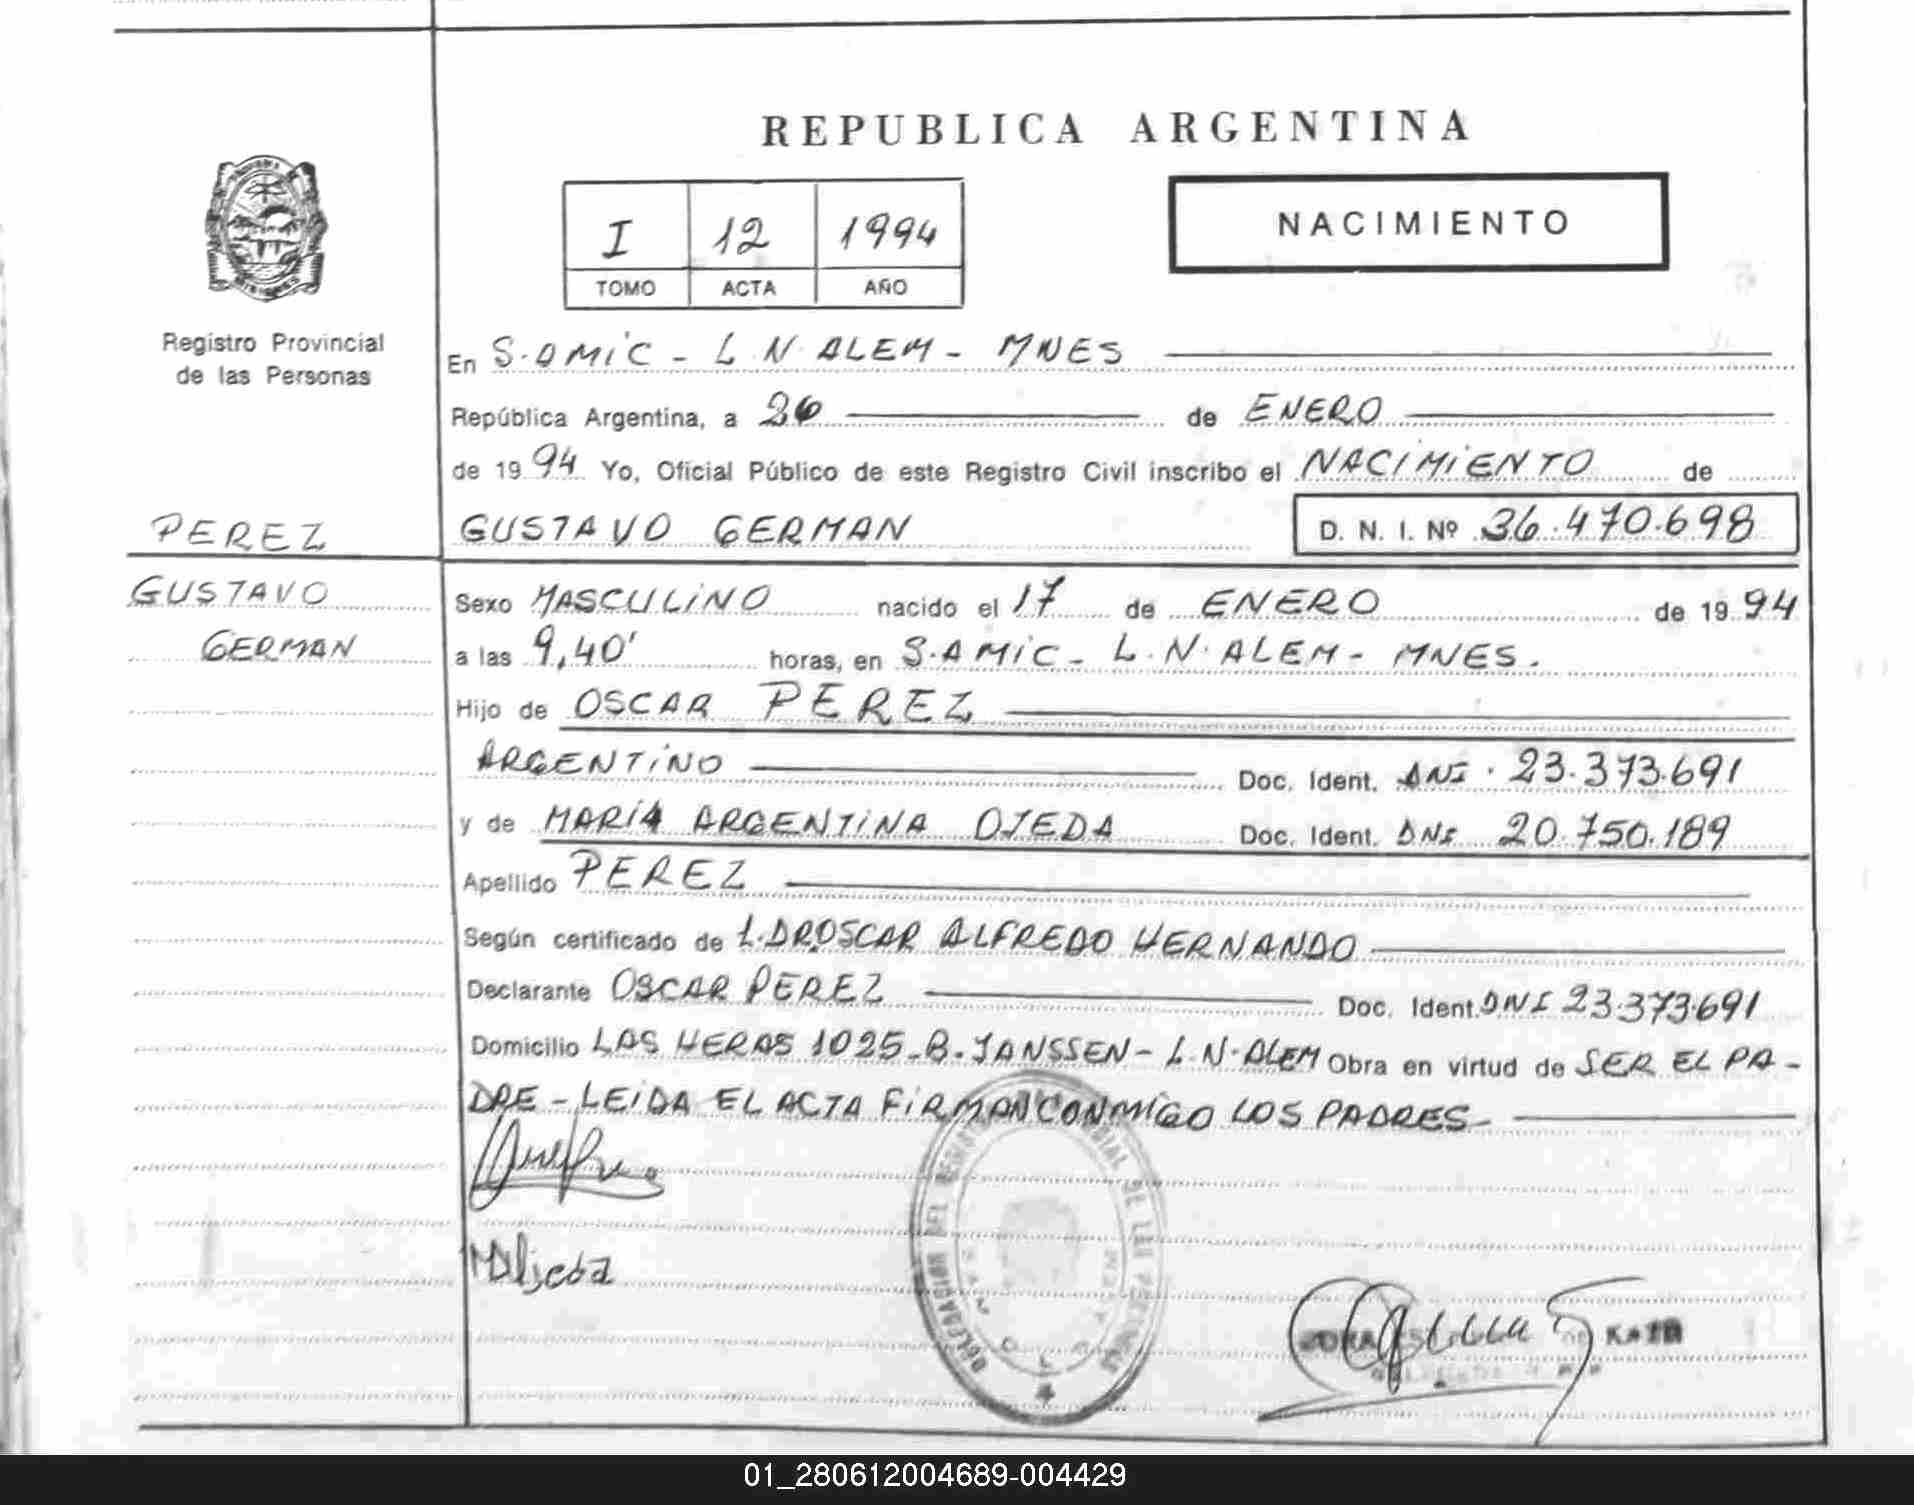 REPUBLICA ARGENTINA
I 12 1994
TOMO ACTA AÑO
NACIMIENTO
Registro Provincial
de las Personas
En S.AMIC - L.N.ALEM - MNES
República Argentina, a 26 de ENERO
de 1994 Yo, Oficial Público de este Registro Civil inscribo el NACIMIENTO de
PEREZ
GUSTAVO
GERMAN
GUSTAVO GERMAN D. N. I. Nº 36.470.698
Sexo MASCULINO nacido el 17 de ENERO de 1994
a las 9,40' horas, en S.AMIC - L.N.ALEM - MNES.
Hijo de OSCAR PEREZ
ARGENTINO Doc. Ident. DNI. 23.373.691
y de MARIA ARGENTINA OJEDA Doc. Ident. DNI 20.750.189
Apellido PEREZ
Según certificado de L.DR.OSCAR ALFREDO HERNANDO
Declarante OSCAR PEREZ Doc. Ident. DNI 23.373.691
Domicilio LAS HERAS 1025-B.JANSSEN-L.N.ALEM Obra en virtud de SER EL PA-
DRE - LEIDA EL ACTA FIRMAN CONMIGO LOS PADRES-
DELEGACION DEL DE LAS
01_280612004689-004429